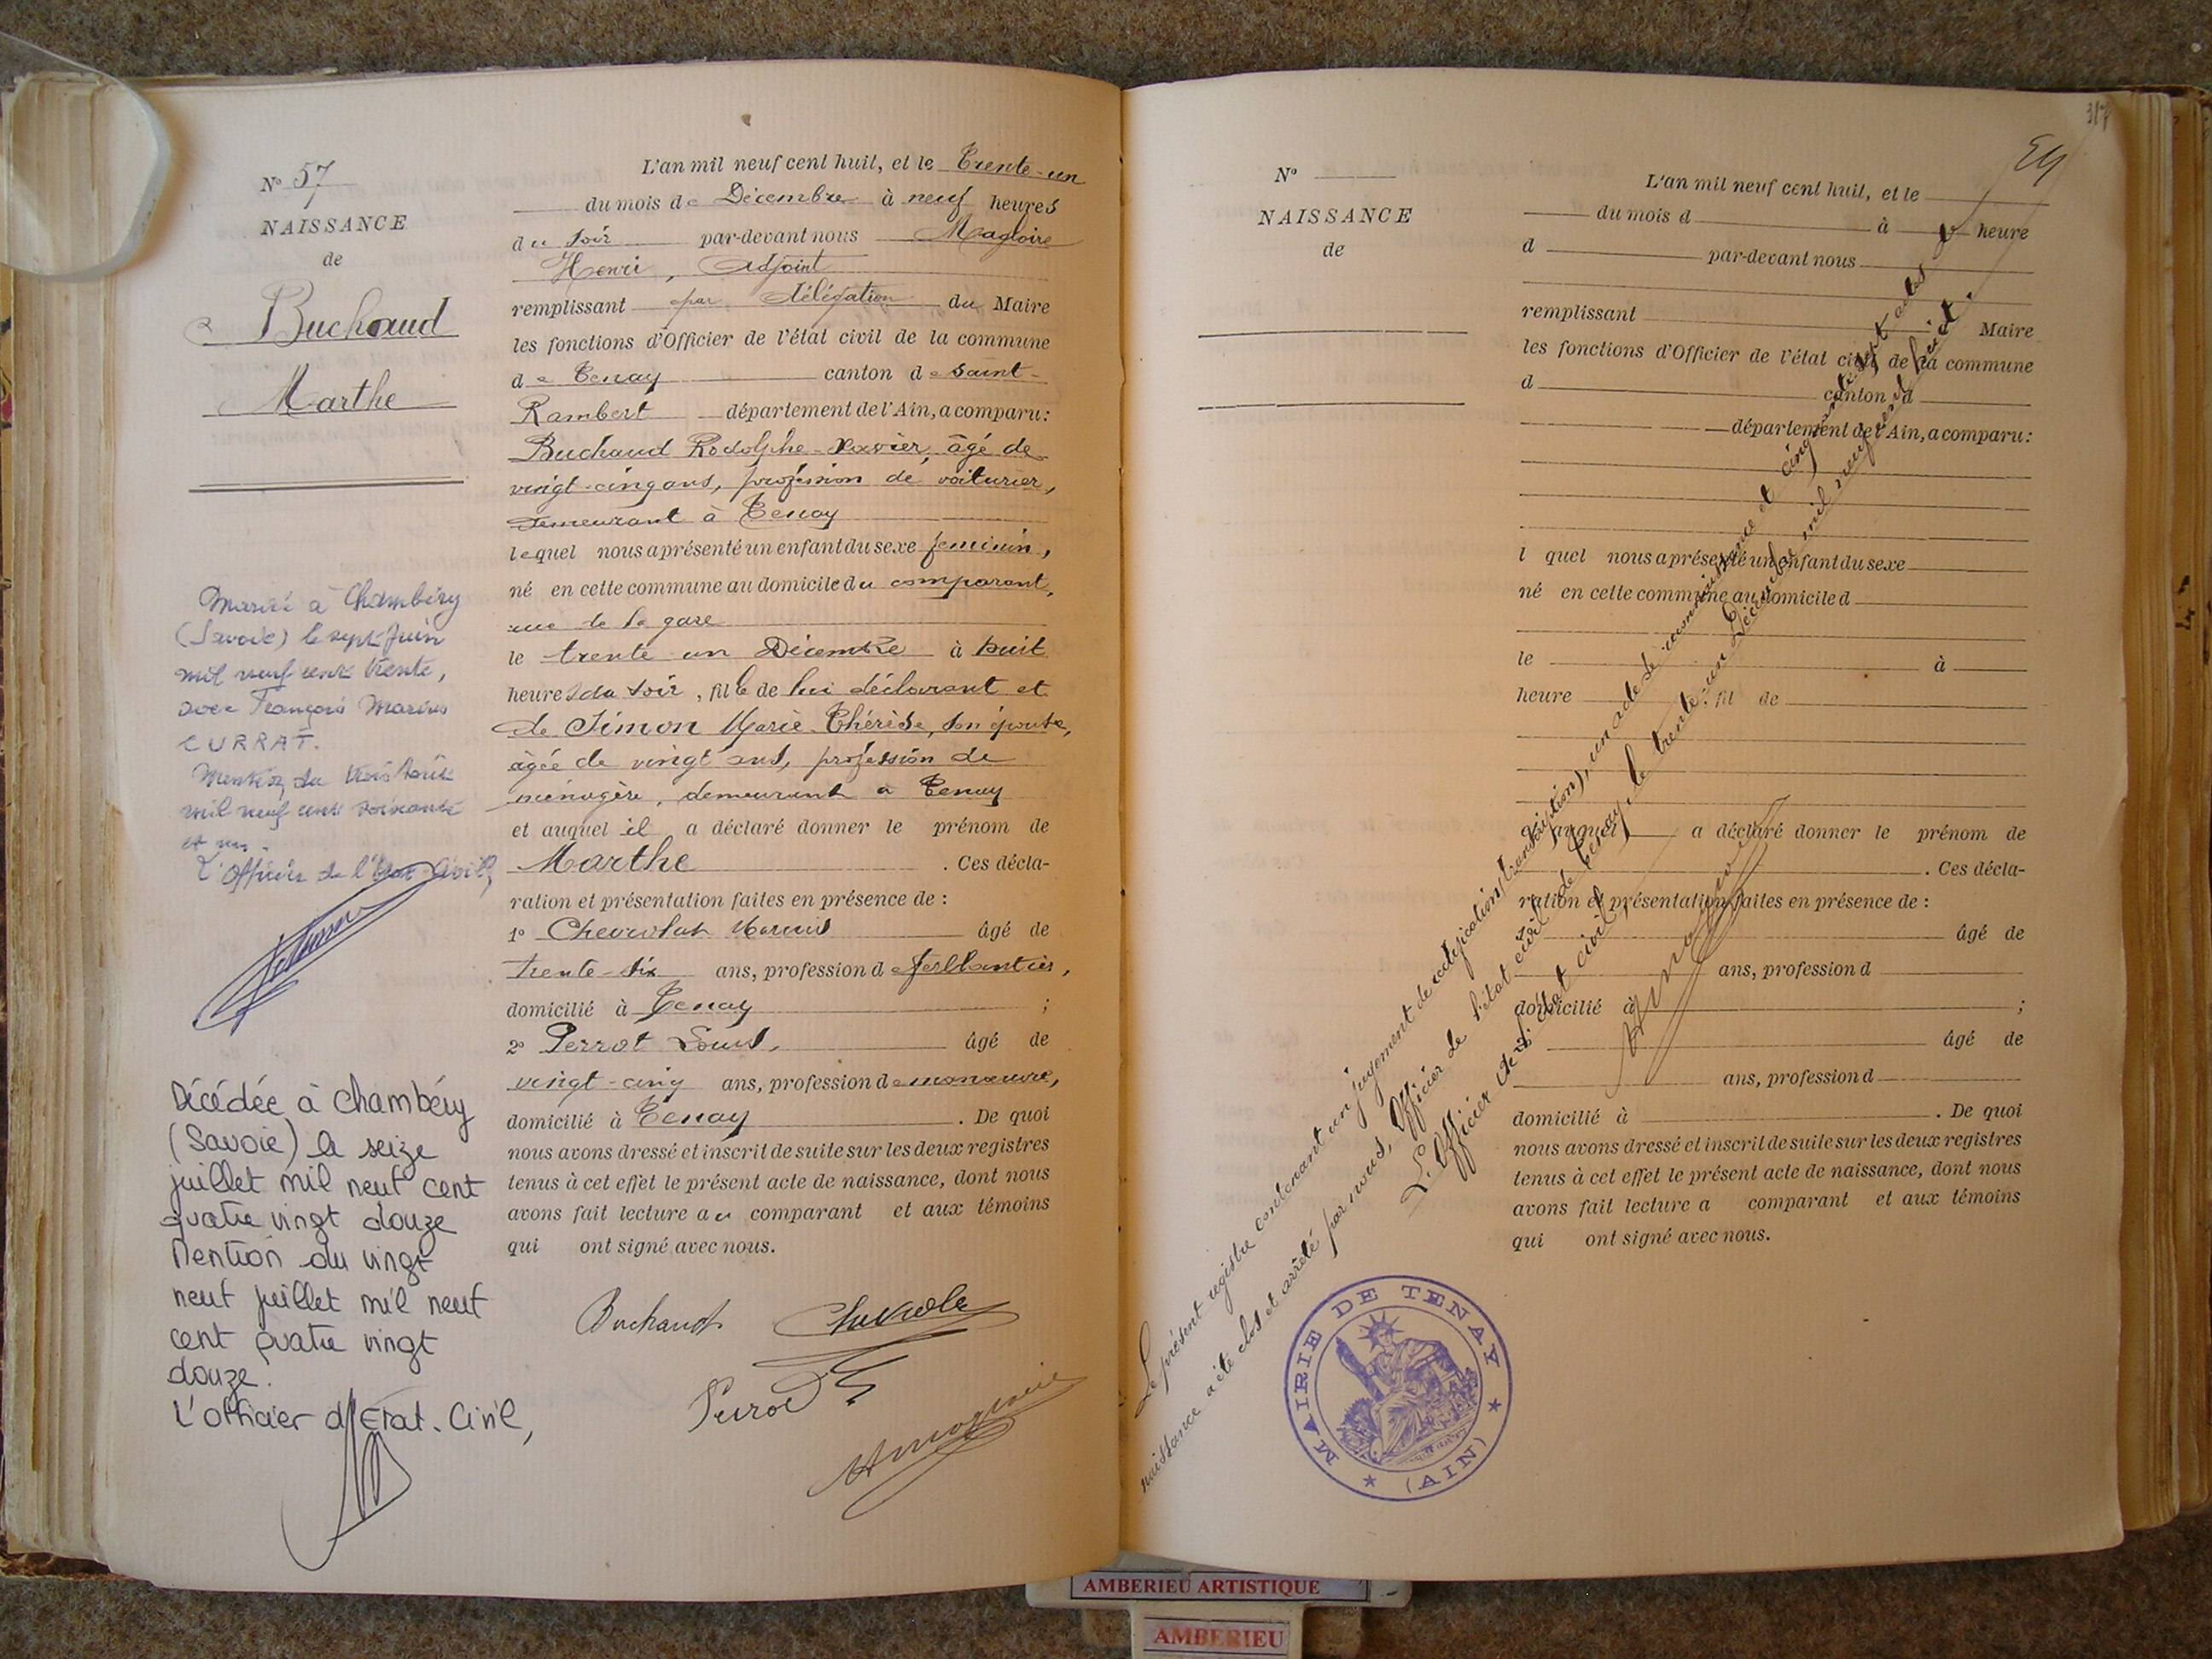 N° 57
NAISSANCE
de
Buchaud
Marthe
Mariée à Chambéry
(Savoie) le sept Juin
mil neuf cent trente,
avec François Marius
CURRAT.
Mention du trois
mil neuf cent soixante
et un.
L'Officier de l'Etat-Civil,
Décédée à Chambéry
(Savoie) le seize
juillet mil neuf cent
quatre vingt douze
Mention du vingt
neuf juillet mil neuf
cent quatre vingt
douze.
L'officier d'Etat-Civil,
L'an mil neuf cent huit, et le Trente-un
du mois de Décembre à neuf heures
du soir par-devant nous Magloire
Henri, Adjoint
remplissant par délégation du Maire
les fonctions d'Officier de l'état civil de la commune
de Tenay canton de Saint-
Rambert département de l'Ain, a comparu:
Buchaud Rodolphe-Xavier, âgé de
vingt-cinq ans, profession de voiturier,
demeurant à Tenay
lequel nous a présenté un enfant du sexe feminin,
né en cette commune au domicile du comparant,
rue de la gare
le trente un Décembre à huit
heures du soir, fille de lui déclarant et
de Simon Marie-Thérèse, son épouse,
âgée de vingt ans, profession de
ménagère, demeurant à Tenay
et auquel il a déclaré donner le prénom de
Marthe . Ces décla-
ration et présentation faites en présence de :
1° Chevrolat Marius âgé de
trente-six ans, profession de ferblantier,
domicilié à Tenay ;
2° Perrot Louis, âgé de
vingt-cinq ans, profession de manœuvre,
domicilié à Tenay . De quoi
nous avons dressé et inscrit de suite sur les deux registres
tenus à cet effet le présent acte de naissance, dont nous
avons fait lecture au comparant et aux témoins
qui ont signé avec nous.
Buchaud
Perrot
317
N°
NAISSANCE
de
L'an mil neuf cent huit, et le
du mois d à heure
d par-devant nous
remplissant Maire
les fonctions d'Officier de l'état civil de la commune
d canton d
département de l'Ain, a comparu:
l quel nous a présenté un enfant du sexe
né en cette commune au domicile d
le à
heure fil de
et auquel a déclaré donner le prénom de
. Ces décla-
ration et présentation faites en présence de :
1° âgé de
ans, profession d
domicilié à ;
2° âgé de
ans, profession d
domicilié à . De quoi
nous avons dressé et inscrit de suite sur les deux registres
tenus à cet effet le présent acte de naissance, dont nous
avons fait lecture a comparant et aux témoins
qui ont signé avec nous.
Le présent registre contenant un jugement de rectification (transcription), un acte de reconnaissance et cinquante-sept actes de
naissance a été clos et arrêté par nous, Officier de l'état civil de Tenay, le trente-un Décembre mil neuf cent huit.
L'Officier de l'état civil,
MAIRIE DE TENAY
(AIN)
AMBERIEU ARTISTIQUE
AMBERIEU